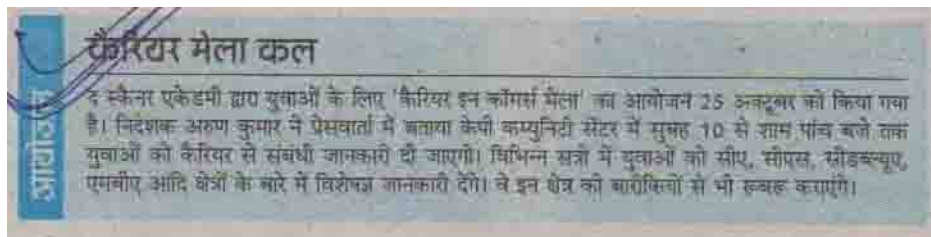 आयोजन
कैरियर मेला कल
द स्कैनर एकेडमी द्वारा युवाओं के लिए 'कैरियर इन कॉमर्स मेला' का आयोजन 25 अक्टूबर को किया गया
है। निदेशक अरुण कुमार ने प्रेसवार्ता में बताया केपी कम्युनिटी सेंटर में सुबह 10 से शाम पांच बजे तक
युवाओं को कैरियर से संबंधी जानकारी दी जाएगी। विभिन्न सत्रों में युवाओं को सीए, सीएस, सीडब्ल्यूए,
एमबीए आदि क्षेत्रों के बारे में विशेषज्ञ जानकारी देंगे। वे इन क्षेत्र की बारीकियों से भी रूबरू कराएंगे।